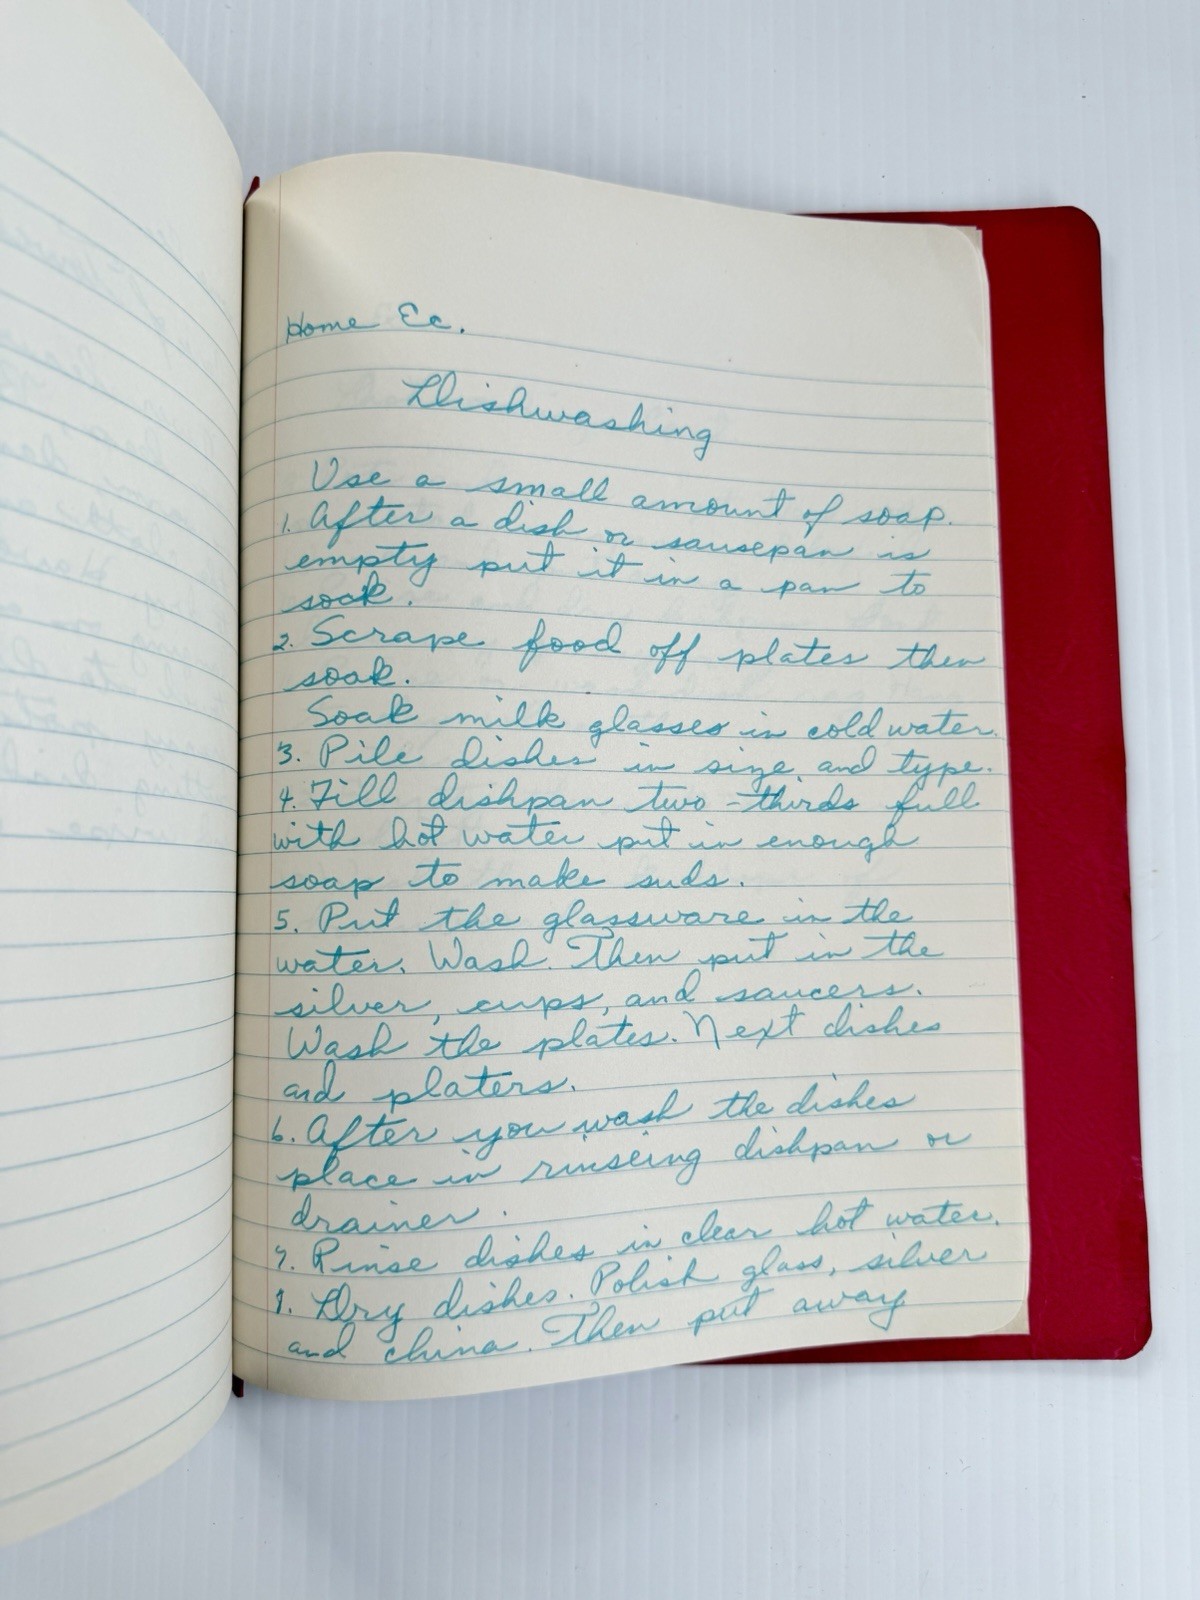 Home Ec.
Dishwashing
Use a small amount of soap.
1. After a dish or sausepan is
empty put it in a pan to
soak.
2. Scrape food off plates then
soak.
Soak milk glasses in cold water.
3. Pile dishes in size and type.
4. Fill dishpan two-thirds full
with hot water put in enough
soap to make suds.
5. Put the glassware in the
water. Wash. Then put in the
silver, cups, and saucers.
Wash the plates. Next dishes
and platers.
6. After you wash the dishes
place in rinseing dishpan or
drainer.
7. Rinse dishes in clear hot water.
8. Dry dishes. Polish glass, silver
and china. Then put away